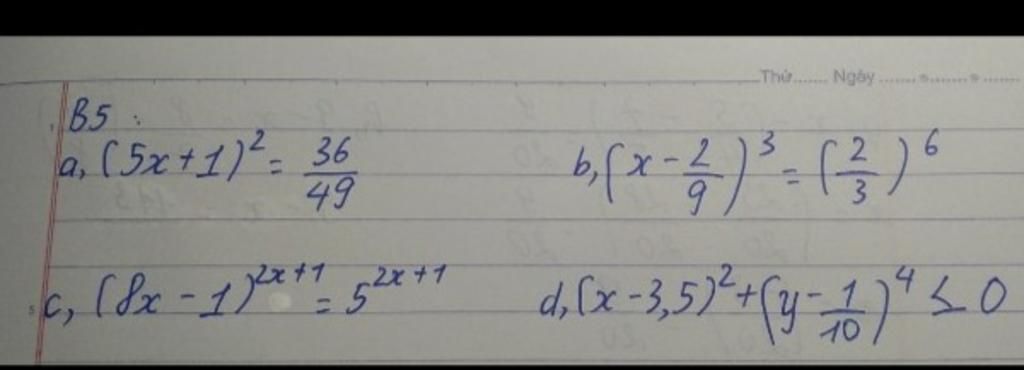 Thứ...... Ngày.......
B5 :
a, (5x+1)² = 36/49
b, (x - 2/9)³ = (2/3)⁶
c, (8x - 1)²ˣ⁺¹ = 5²ˣ⁺¹
d, (x - 3,5)² + (y - 1/10)⁴ ≤ 0